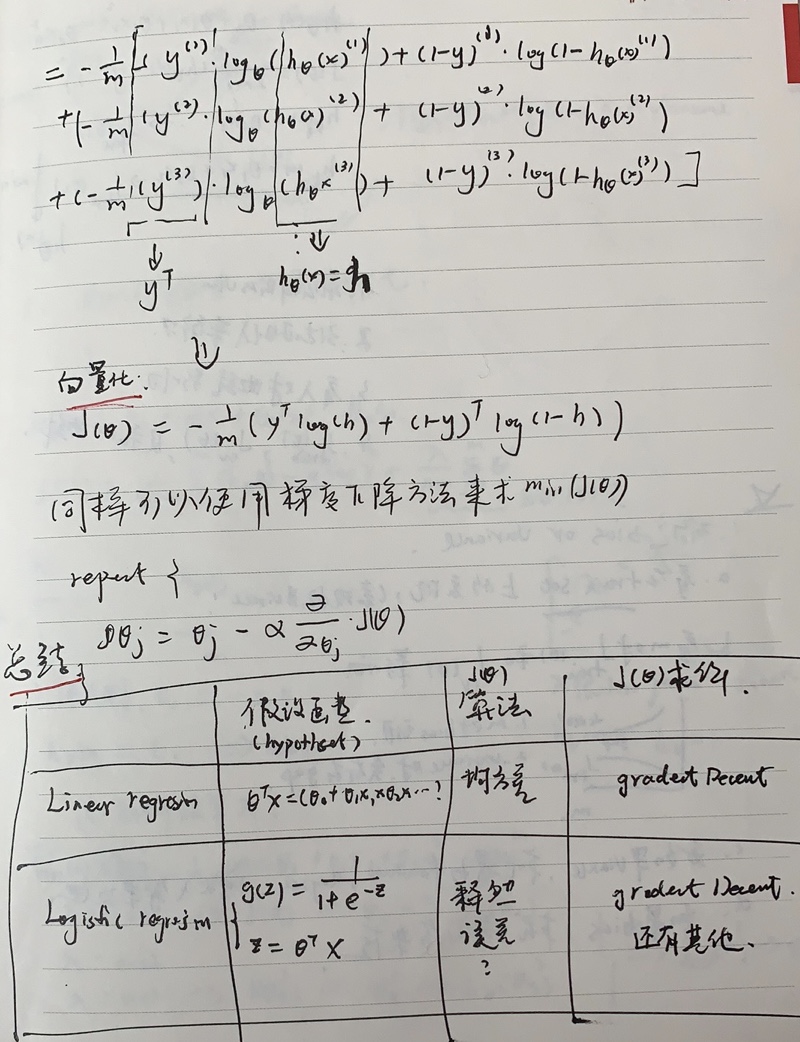 = -1/m [( y^(1) · log_θ (h_θ(x)^(1)) + (1-y)^(1) · log(1-h_θ(x)^(1))
+(-1/m (y^(2) · log_θ (h_θ(x)^(2) + (1-y)^(2) · log(1-h_θ(x)^(2))
+(-1/m (y^(3)) · log_θ (h_θ x^(3)) + (1-y)^(3) · log(1-h_θ(x)^(3)) ]
y^T
h_θ(x) = h
向量化.
J(θ) = -1/m (y^T log(h) + (1-y)^T log(1-h))
同样可以使用梯度下降方法来求 min(J(θ))
repeat {
θ_j = θ_j - α ∂/∂θ_j · J(θ)
}
总结
假设函数. (hypothset)
J(θ) 算法
J(θ)求解.
Linear regressin
θ^T x = (θ_0 + θ_1 x_1 + θ_2 x ...?
均方差
gradect Decent
Logistic regressin
g(z) = 1/(1+e^-z)
z = θ^T X
?
gradect Decent.
还有其他.